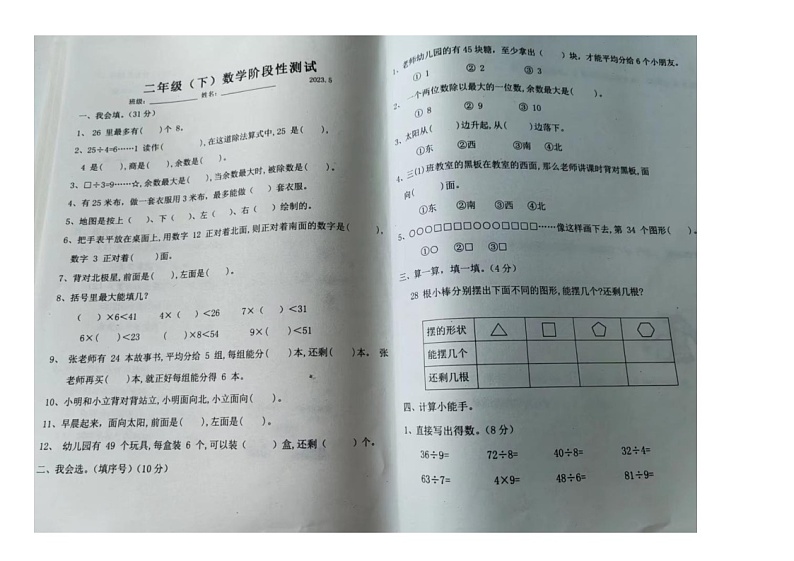 二年级（下）数学阶段性测试
2023.5
班级：__________ 姓名：__________
一、我会填。（31 分）
1、 26 里最多有（  ）个 8,
2、25÷4=6……1 读作（  ）,在这道除法算式中,25 是（  ），
4 是（  ）,商是（  ）,余数是（  ）。
3、□÷3=9……☆,余数最大是（  ）,当余数最大时,被除数是（  ）。
4、有 25 米布，做一套衣服用 3 米布，最多能做（  ）套衣服。
5、地图是按上（  ）、下（  ）、左（  ）、右（  ）绘制的。
6、把手表平放在桌面上,用数字 12 正对着北面,则正对着南面的数字是（  ），
数字 3 正对着（  ）面。
7、背对北极星,前面是（  ）,左面是（  ）。
8、括号里最大能填几？
（  ）×6<41  4×（  ）<26  7×（  ）<31
6×（  ）<23  （  ）×8<54  9×（  ）<51
9、 张老师有 24 本故事书,平均分给 5 组,每组能分（  ）本,还剩（  ）本。 张
老师再买（  ）本,就正好每组能分得 6 本。
10、小明和小立背对背站立,小明面向北,小立面向（  ）。
11、早晨起来，面向太阳,前面是（  ）,左面是（  ）。
12、 幼儿园有 49 个玩具,每盒装 6 个,可以装（  ）盒,还剩（  ）个。
二、我会选。（填序号）（10 分）
1、老师幼儿园的有 45 块糖，至少拿出（  ）块，才能平均分给 6 个小朋友。
① 1  ② 2  ③ 3
2、一个两位数除以最大的一位数,余数最大是（  ）。
① 8  ② 9  ③ 10
3、太阳从（  ）边升起,从（  ）边落下。
①东  ②西  ③南  ④北
4、三(1)班教室的黑板在教室的西面,那么老师讲课时背对黑板,面
向（  ）面。
①东  ②南  ③西  ④北
5、○○○□□□□○○○□□□□……像这样画下去,第 34 个图形（  ）。
①○  ②□  ③○
三、算一算，填一填。（4 分）
28 根小棒分别摆出下面不同的图形,能摆几个?还剩几根?
摆的形状
能摆几个
还剩几根
四、计算小能手。
1、直接写出得数。（8 分）
36÷9=  72÷8=  40÷8=  32÷4=
63÷7=  4×9=  48÷6=  81÷9=